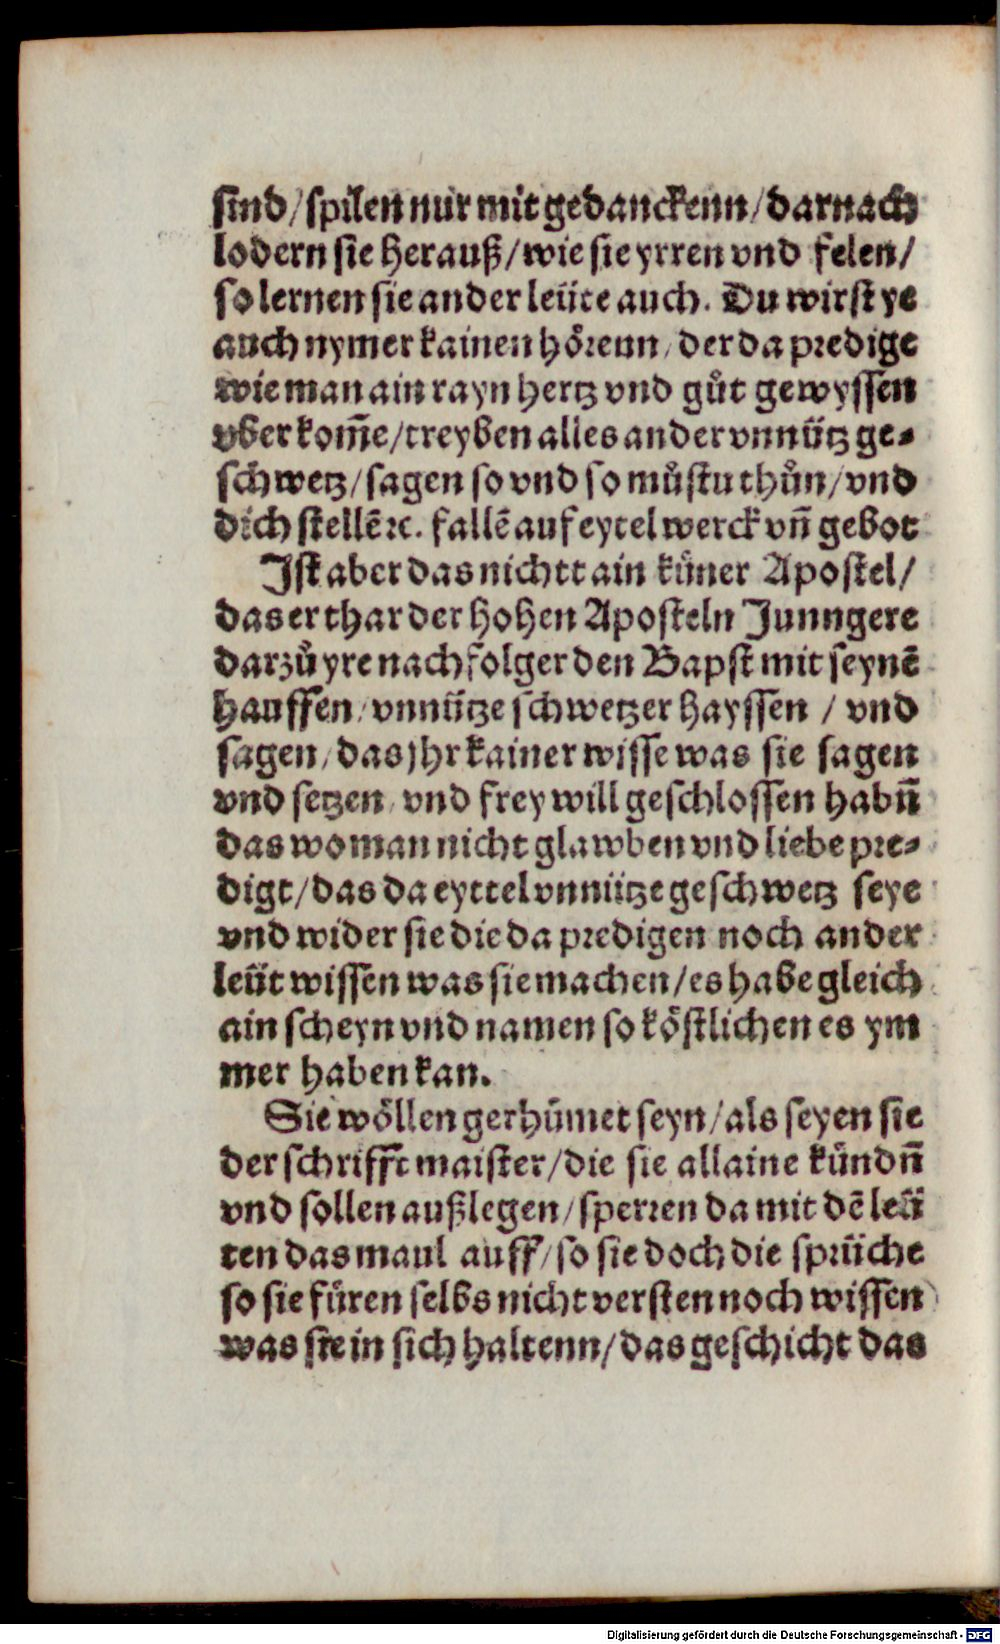 sind/spilen nur mit gedanckenn/darnach
lodern sie herauß/wie sie yrren vnd felen/
so lernen sie ander leüte auch. Du wirst ye
auch nymer kainen hörenn/der da predige
wie man ain rayn hertz vnd gůt gewyssen
vberkom̄e/treyben alles ander vnnütz ge⸗
schwetz/sagen so vnd so můstu thůn/vnd
dich stellē ꝛc. fallē auf eytel werck vn̄ gebot
Ist aber das nichtt ain küner Apostel/
das er thar der hohen Aposteln Junngere
darzů yre nachfolger den Bapst mit seynē
hauffen/vnnütze schwetzer hayssen / vnd
sagen/das jhr kainer wisse was sie sagen
vnd setzen/vnd frey will geschlossen habn̄
das wo man nicht glawben vnd liebe pre⸗
digt/das da eyttel vnnütze geschwetz seye
vnd wider sie die da predigen noch ander
leüt wissen was sie machen/es habe gleich
ain scheyn vnd namen so köstlichen es ym
mer haben kan.
Sie wöllen gerhümet seyn/als seyen sie
der schrifft maister/die sie allaine kündn̄
vnd sollen außlegen/sperren da mit dē leü
ten das maul auff/so sie doch die sprüche
so sie füren selbs nicht versten noch wissen
was sie in sich haltenn/das geschicht das
Digitalisierung gefördert durch die Deutsche Forschungsgemeinschaft - DFG